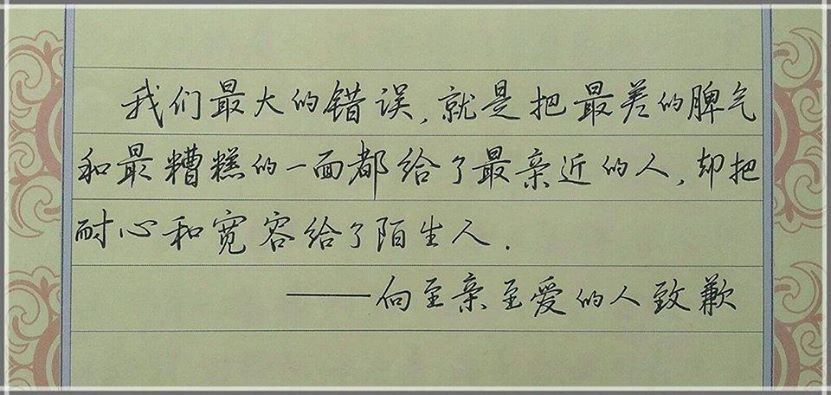 我们最大的错误,就是把最差的脾气
和最糟糕的一面都给了最亲近的人,却把
耐心和宽容给了陌生人.
——向至亲至爱的人致歉